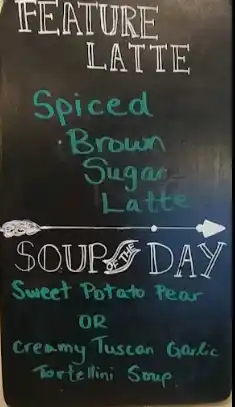 FEATURE
LATTE
Spiced
Brown
Sugar
Latte
SOUP OF THE DAY
Sweet Potato Pear
OR
Creamy Tuscan Garlic
Tortellini Soup